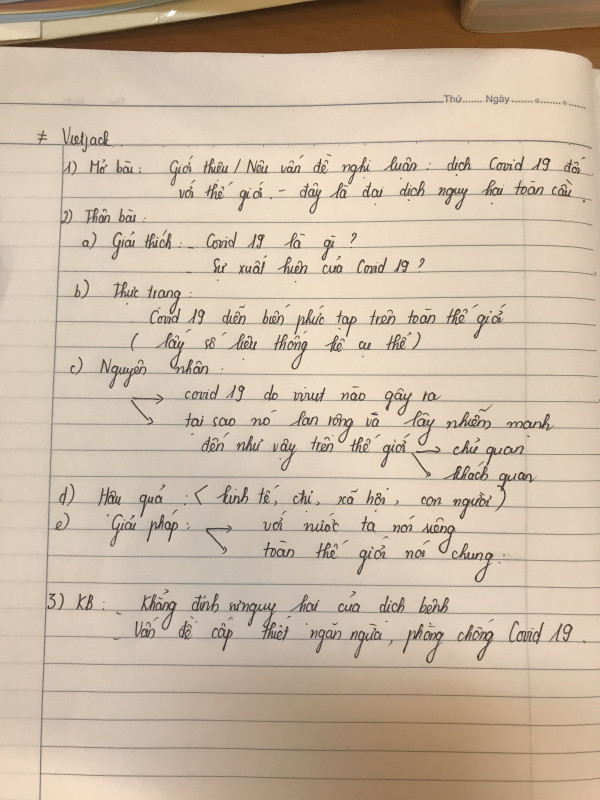 Thứ....... Ngày.......................
≠ Vietjack
1) Mở bài : Giới thiệu / Nêu vấn đề nghị luận : dịch Covid 19 đối
với thế giới. - đây là đại dịch nguy hại toàn cầu.
2) Thân bài :
a) Giải thích : - Covid 19 là gì ?
- Sự xuất hiện của Covid 19 ?
b) Thực trạng :
Covid 19 diễn biến phức tạp trên toàn thế giới
( lấy số liệu thống kê cụ thể )
c) Nguyên nhân :
→ covid 19 do virut nào gây ra
→ tại sao nó lan rộng và lây nhiễm mạnh
đến như vậy trên thế giới → chủ quan
→ khách quan
d) Hậu quả : ( kinh tế, ctrị, xã hội, con người )
e) Giải pháp : → với nước ta nói riêng
→ toàn thế giới nói chung.
3) KB : - Khẳng định sự nguy hại của dịch bệnh
- Vấn đề cấp thiết ngăn ngừa, phòng chống Covid 19.